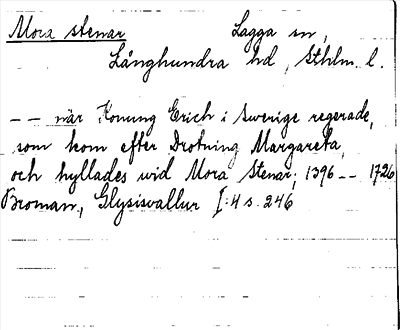 Mora stenar Lagga sn,
Långhundra hd, Sthlm. l.
-- när Konung Erich i Swerige regerade,
som kom efter Drotning Margareta,
och hyllades wid Mora Stenar; 1396 -- 1726
Broman, Glysisvallur I:4 s. 246